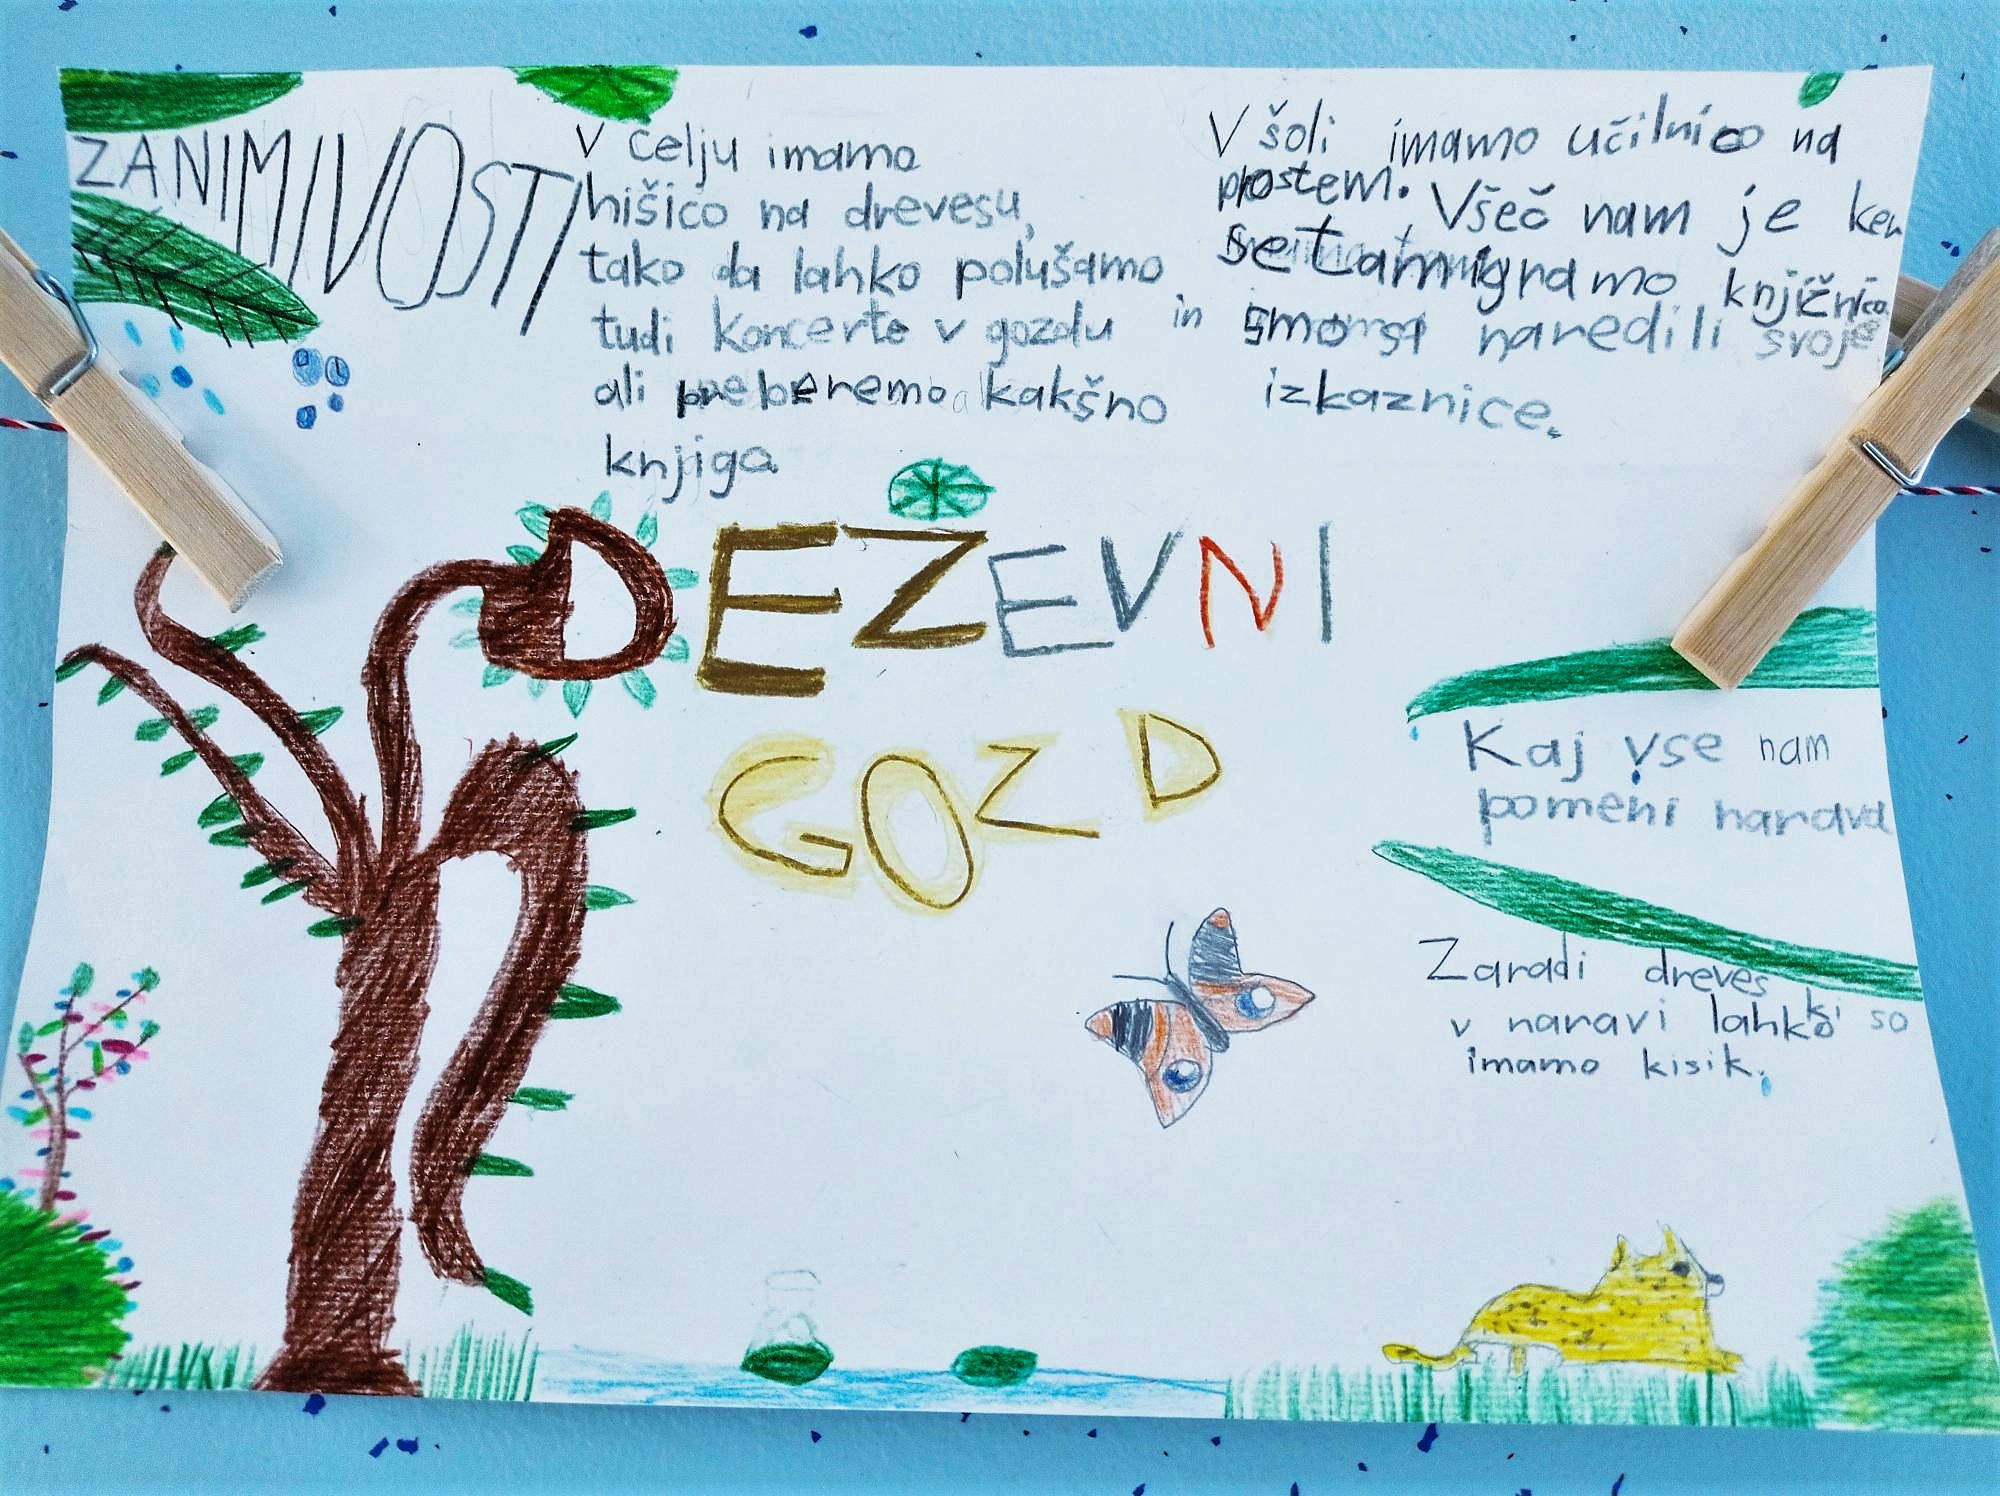 ZANIMIVOSTI
V celju imamo
hišico na drevesu,
tako da lahko polušamo
tudi koncerte v gozdu
ali preberemo kakšno
knjiga
V šoli imamo učilnico na
prostem. Všeč nam je ker
se tam igramo knjižnico
in smo si naredili svoje
izkaznice.
DEŽEVNI
GOZD
Kaj vse nam
pomeni narava
Zaradi dreves ki so
v naravi lahko
imamo kisik.